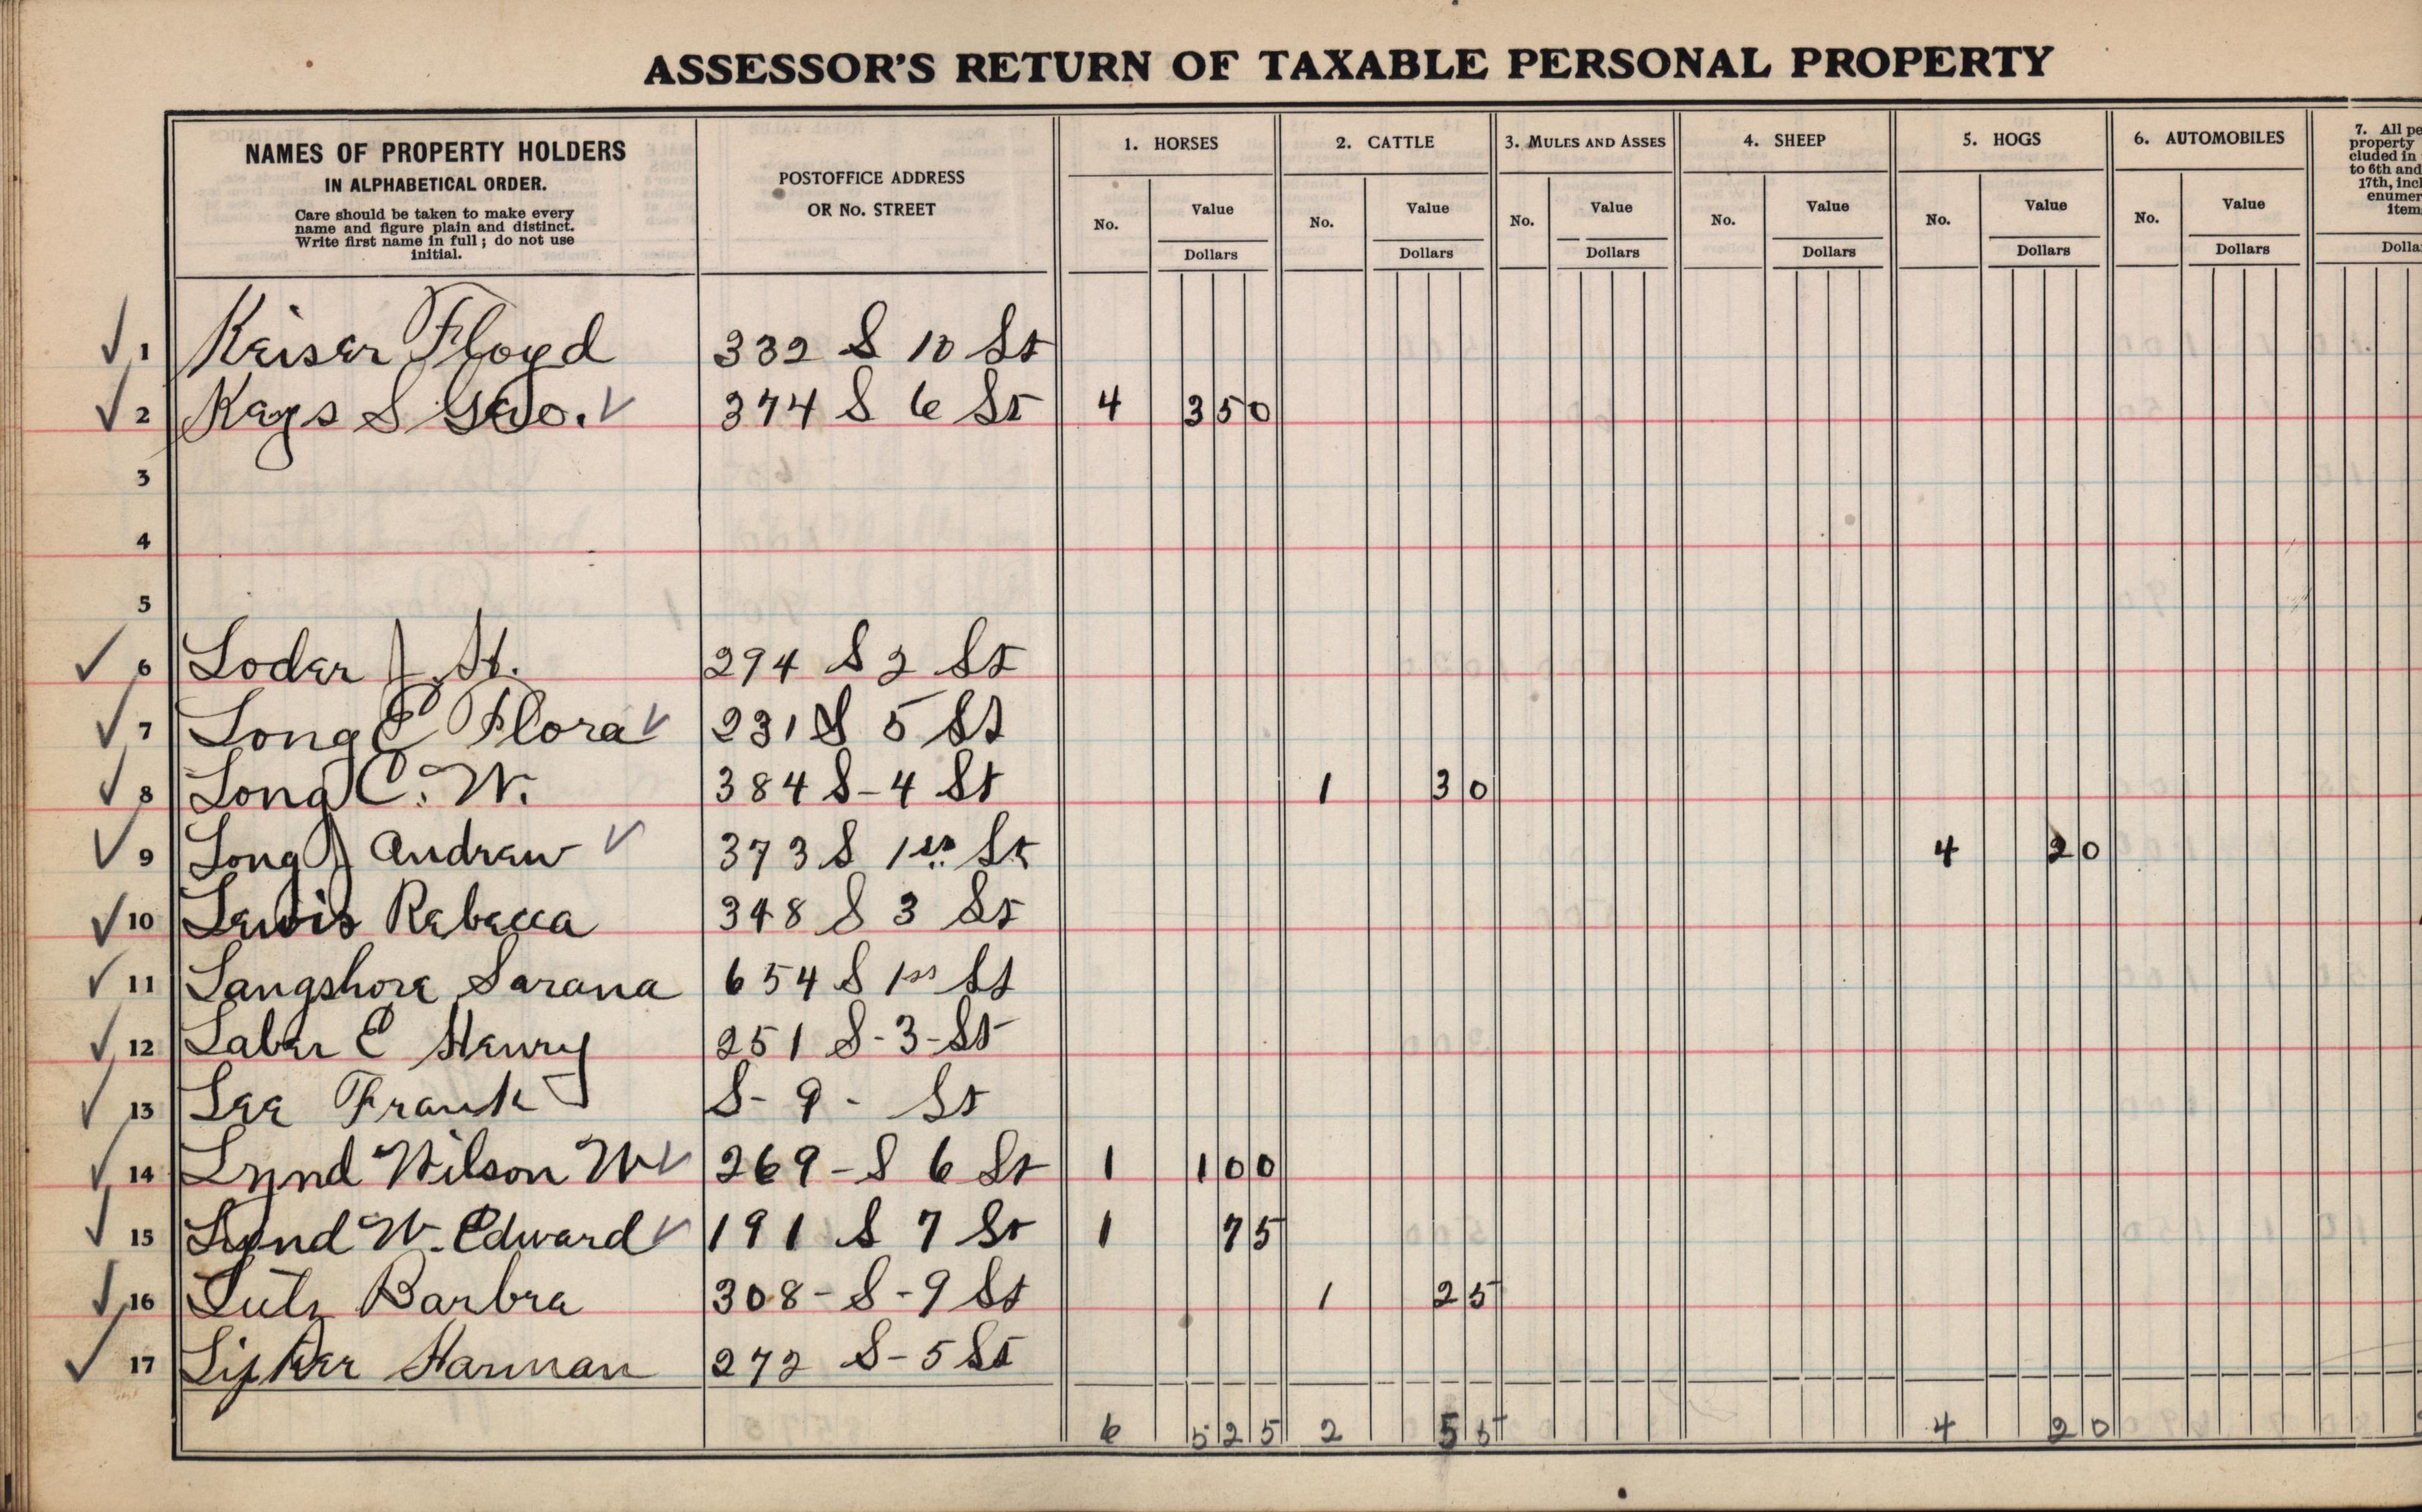 ASSESSOR'S RETURN OF TAXABLE PERSONAL PROPERTY
NAMES OF PROPERTY HOLDERS
IN ALPHABETICAL ORDER.
Care should be taken to make every
name and figure plain and distinct.
Write first name in full; do not use
initial.
POSTOFFICE ADDRESS
OR No. STREET
1. HORSES
No. Value
Dollars
2. CATTLE
No. Value
Dollars
3. MULES AND ASSES
No. Value
Dollars
4. SHEEP
No. Value
Dollars
5. HOGS
No. Value
Dollars
6. AUTOMOBILES
No. Value
Dollars
7. All pe
property
cluded in
to 6th and
17th, incl
enumer
item
Dolla
1 Keiser Floyd 332 S 10 St
2 Kays S Geo. 374 S 6 St 4 350
3
4
5
6 Loder J. H. 294 S 2 St
7 Long E Flora 231 S 5 St
8 Long C. W. 384 S-4 St 1 30
9 Long J Andrew 373 S 1st St 4 20
10 Lewis Rebecca 348 S 3 St
11 Langshore Sarana 654 S 1st St
12 Laber E Henry 251 S-3-St
13 Lee Frank S-9- St
14 Lynd Wilson W 269-S 6 St 1 100
15 Lynd W. Edward 191 S 7 St 1 75
16 Lutz Barbra 308-S-9 St 1 25
17 Harman 272 S-5 St
6 525 2 55 4 20